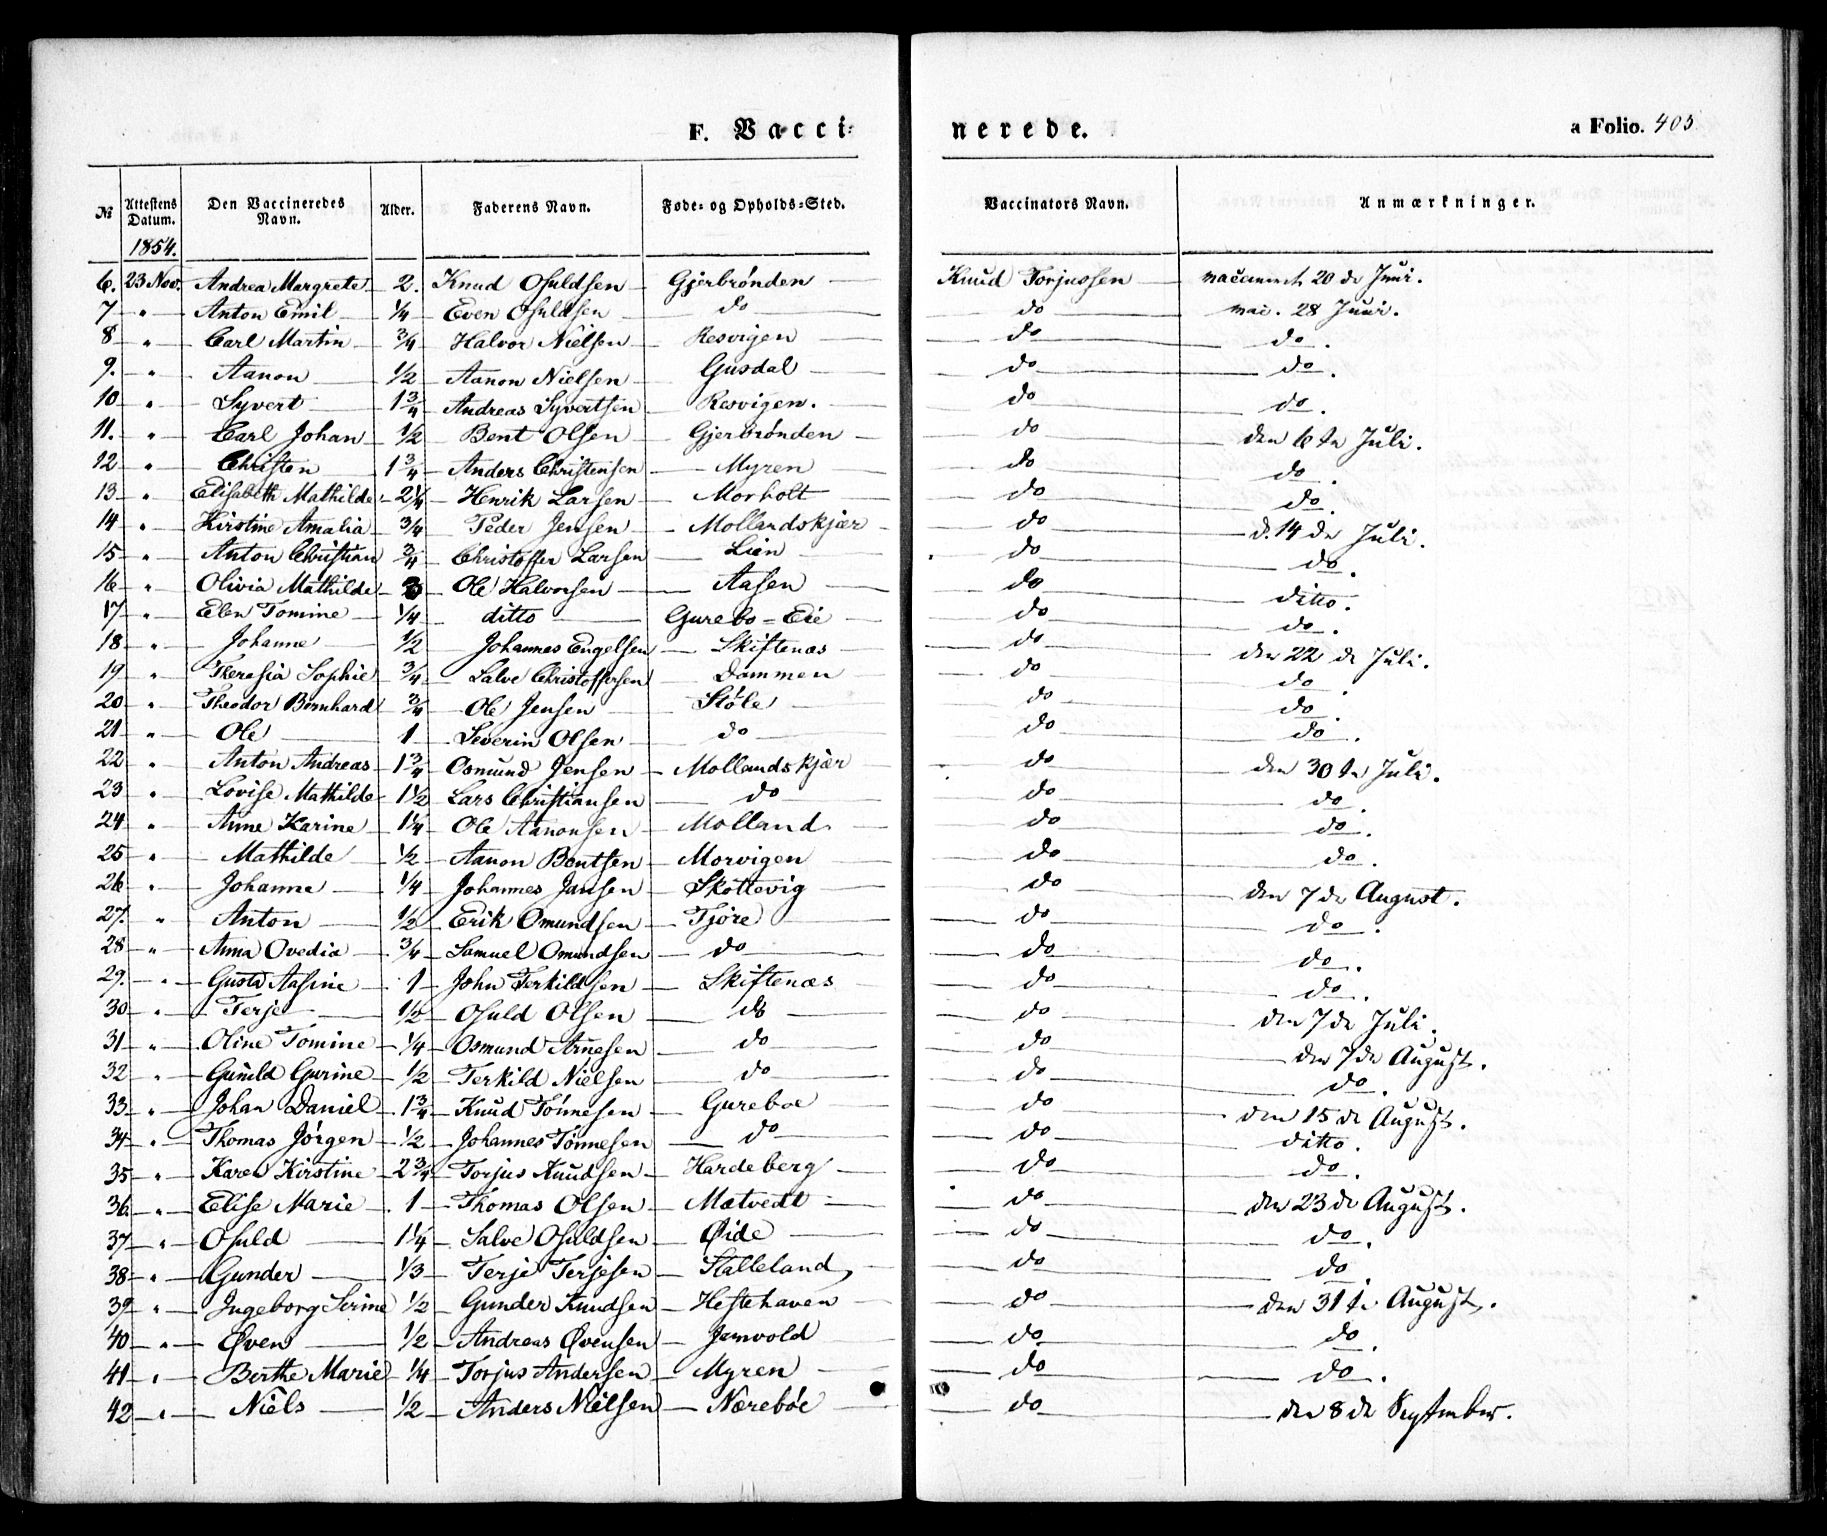 F. Vacci- nerede. a Folio. 405
No | Attestens Datum. | Den Vaccineredes Navn. | Alder. | Faderens Navn. | Føde- og Opholds-Sted. | Vaccinators Navn. | Anmærkninger.
1854.
6. 23 Nov. Andrea Margrete 2. Knud Osuldsen Gjerbrønden Knud Torjussen vaccineret 20 de Juni.
7 " Anton Emil 1/4 Even Osuldsen do do vac. 28 Juni.
8 " Carl Martin 3/4 Halvor Nielsen Resvigen do do.
9. " Aanon 1/2 Aanon Nielsen Gusdal do do.
10 " Syvert 1 3/4 Andreas Syvertsen Resvigen. do do.
11. " Carl Johan 1/2 Bent Olsen Gjerbrønden do den 6te Juli.
12 " Christen 1 3/4 Anders Christensen Myren do do.
13 " Elisabeth Mathilde 2 1/4 Henrik Larsen Morholt do do.
14 " Kirstine Amalia 3/4 Peder Jensen Mollandskjær do d. 14 de Juli.
15 " Anton Christian 3/4 Christoffer Larsen Lien do do.
16 " Olivia Mathilde 3 Ole Halvorsen Aasen do ditto.
17 " Elen Tomine 1/4 ditto Gurebo-Eie do do.
18 " Johanne 1/2 Johannes Engelsen Skiftenæs do den 22 de Juli.
19 " Theresia Sophie 3/4 Salve Christoffersen Dammen do do.
20 " Theodor Bernhard 3/4 Ole Jensen Støle do do.
21 " Ole 1 Severin Olsen do do do.
22 " Anton Andreas 1 3/4 Osmund Jensen Mollandskjær do den 30te Juli.
23 " Lovise Mathilde 1 1/2 Lars Christiansen do do do.
24 " Anne Karine 1 1/4 Ole Aanonsen Molland do do.
25 " Mathilde 1/2 Aanon Bentsen Morvigen do do.
26 " Johanne 1/4 Johannes Jansen Skottevig do den 7 de August.
27. " Anton 1/2 Erik Omundsen Tjøre do do.
28 " Anna Ovedia 3/4 Samuel Omundsen do do do.
29. " Gusta Aasine 1 John Terkildsen Skiftenæs do do.
30 " Terje 1/2 Osuld Olsen do do den 7 de Juli.
31 " Oline Tomine 1/4 Osmund Arnesen do do den 7 de August.
32 " Gunild Gurine 1/2 Terkild Nielsen do do do.
33 " Johan Daniel 1 3/4 Knud Tønnesen Gureboe do den 15 de August.
34 " Thomas Jørgen 1/2 Johannes Tønnesen do do ditto.
35 " Karen Kirstine 2 3/4 Torjus Knudsen Hardeberg do do.
36 " Elise Marie 1 Thomas Olsen Mætvedt do den 23 de August.
37 " Osuld 1 1/4 Salve Osuldsen Øide do do.
38 " Gunder 1/3 Terje Terjesen Stalleland do do
39 " Ingeborg Serine 1/2 Gunder Knudsen Hestehaven do den 31te August.
40 " Øven 1/2 Andreas Øvensen Jernvold do do.
41 " Berthe Marie 1/4 Torjus Andersen Myren do do.
42 " Niels 1/2 Anders Nielsen Nærebøe do den 8 de September.